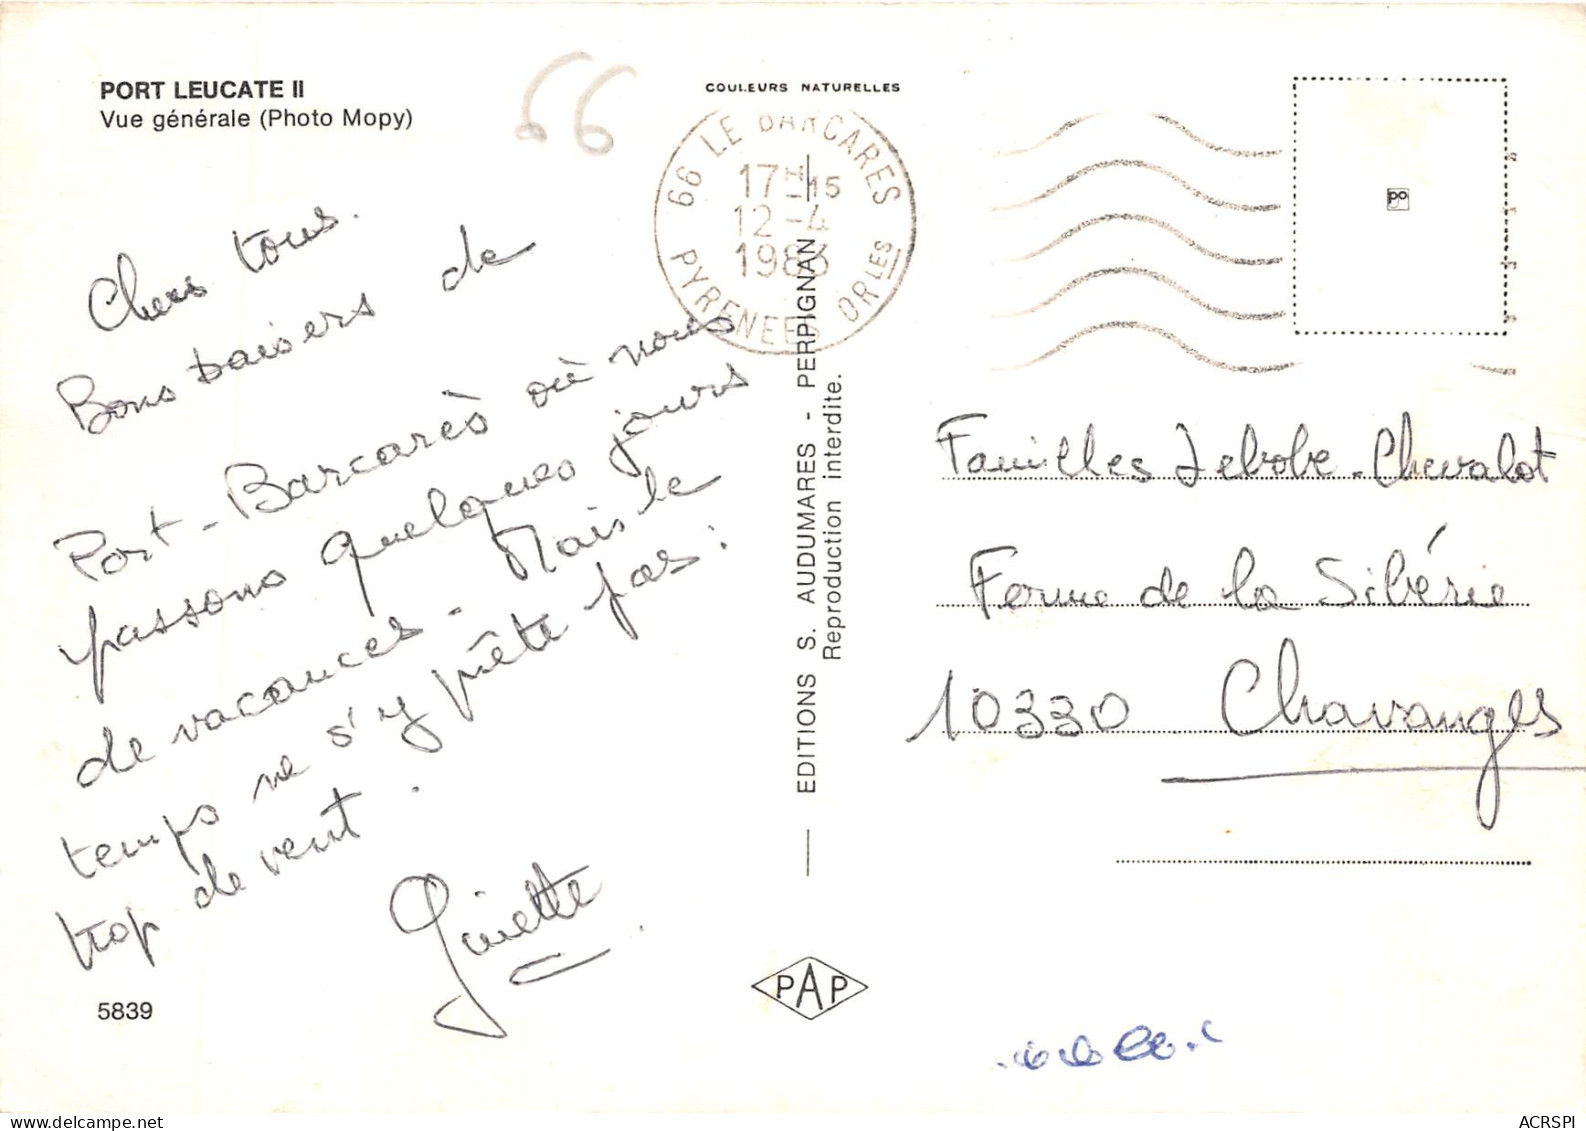 PORT LEUCATE II
Vue générale (Photo Mopy)
66
COULEURS NATURELLES
66 LE BARCARES
17H15
12-4
1983
PYRENEES ORLES
Chers tous.
Bons baisers de
Port-Barcarès où nous
passons quelques jours
de vacances. Mais le
temps ne s'y prête pas:
trop de vent.
Ginette
5839
EDITIONS S. AUDUMARES - PERPIGNAN
Reproduction interdite.
PAP
Familles Lebobe-Chevalot
Ferme de la Sibérie
10330 Chavanges
ACRSPI